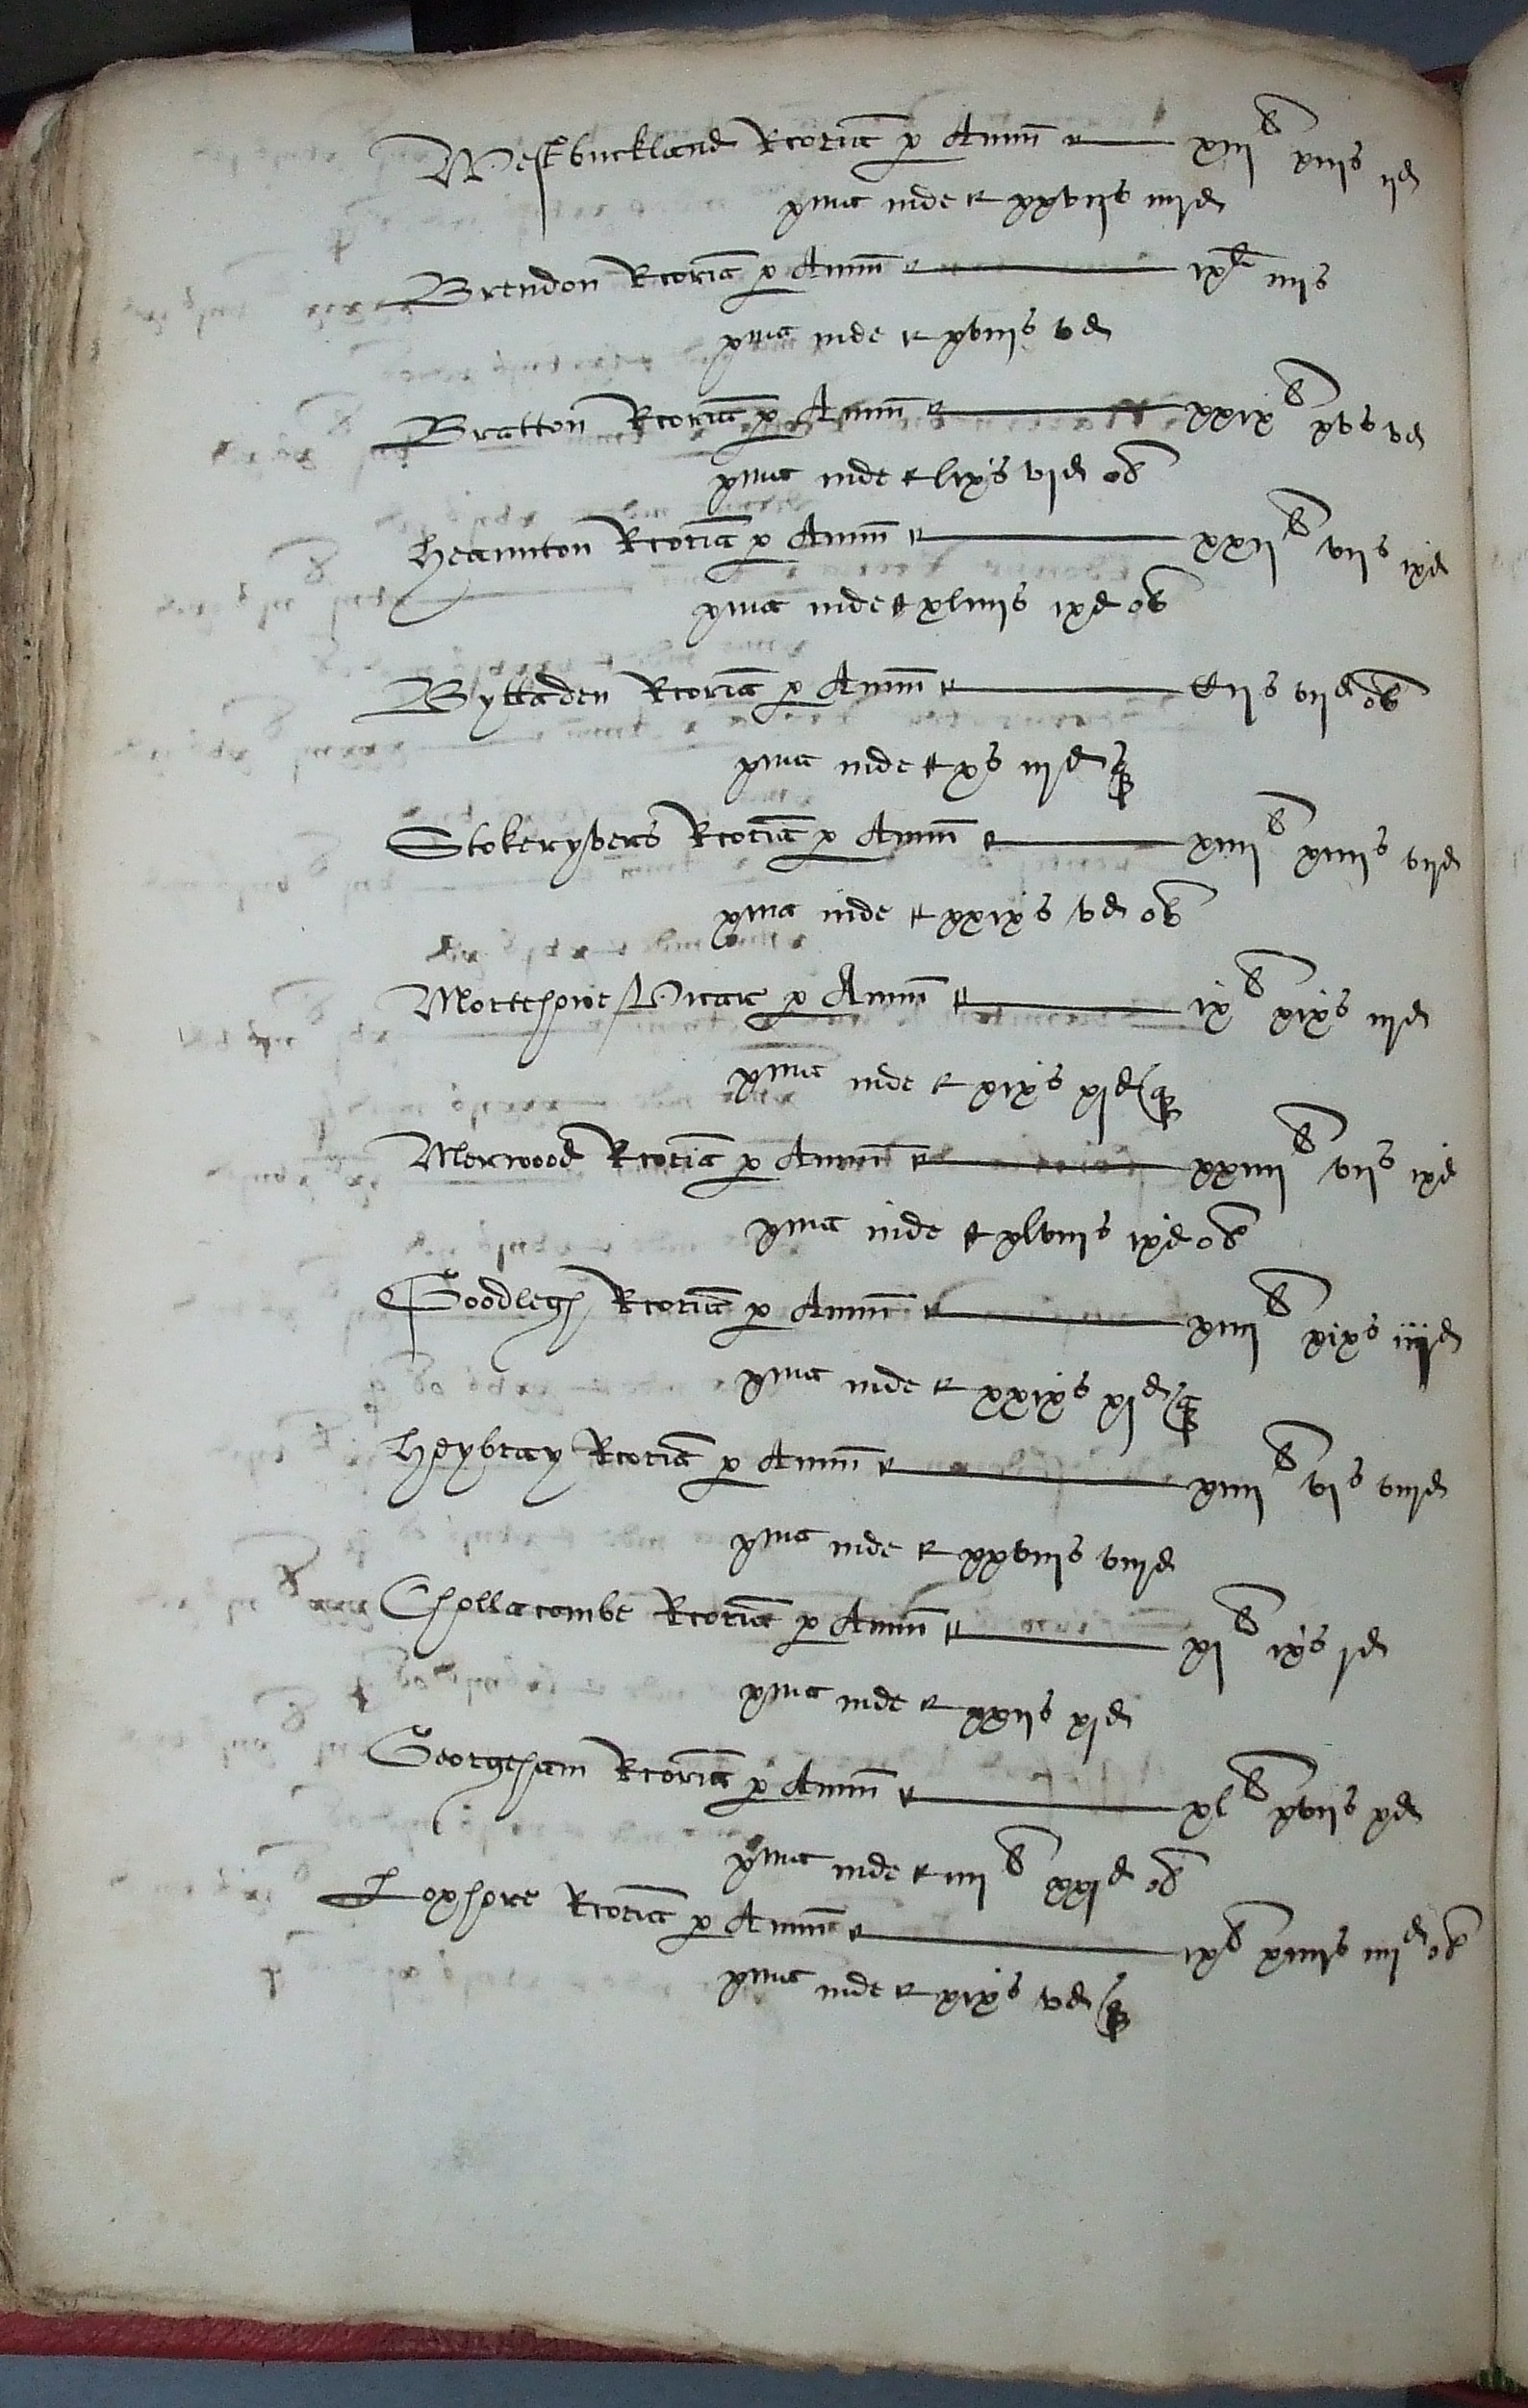 Westbuckland Rcoria p Annu xiijli xiijs ijd
xma inde xxvijs iiijd
Brendon Rcoria p Annu ixli iiijs
xma inde xviijs vd
Bratton Rcoria p Annu xxixli xvs vd
xma inde lixs vjd ob
Heannton Rcoria p Annu xxijli vijs ixd
xma inde xliiijs ixd ob
Byttaden Rcoria p Annu Cijs vijd ob
xma inde xs iijd q
Stokeryvers Rcoria p Annu xiiijli xiiijs vijd
xma inde xxixs vd ob
Mortehoie Vicar p Annu ixli xixs iijd
xma inde xixs xjd q
Merwood Rcoria p Annu xxiiijli vijs ixd
xma inde xlviijs ixd ob
Goodlegh Rcoria p Annu xiiijli xixs iiijd
xma inde xxixs xjd q
Heybray Rcoria p Annu xiiijli vjs viijd
xma inde xxviijs viijd
Chollacombe Rcoria p Annu xjli ixs jd
xma inde xxijs xjd
Georgeham Rcoria p Annu xlli xvijs xd
xma inde iiijli xxjd ob
Loxhore Rcoria p Annu ixli xiiijs iiijd ob
xma inde xixs vd q